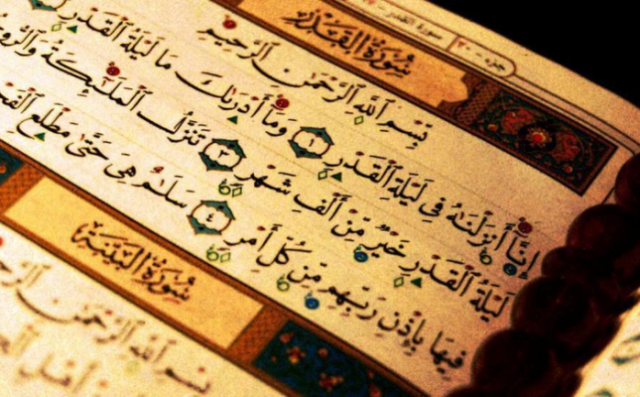 جزء - ٣٠ سورة القدر
سُورَةُ الْقَدْرِ
بِسْمِ اللَّهِ الرَّحْمَٰنِ الرَّحِيمِ
إِنَّا أَنزَلْنَٰهُ فِى لَيْلَةِ الْقَدْرِ ١ وَمَا أَدْرَىٰكَ مَا لَيْلَةُ الْقَدْرِ
لَيْلَةُ الْقَدْرِ خَيْرٌ مِّنْ أَلْفِ شَهْرٍ ٣ تَنَزَّلُ الْمَلَٰٓئِكَةُ وَالرُّو
فِيهَا بِإِذْنِ رَبِّهِم مِّن كُلِّ أَمْرٍ ٤ سَلَٰمٌ هِىَ حَتَّىٰ مَطْلَعِ الْفَ
سُورَةُ الْبَيِّنَةِ
بِسْمِ اللَّهِ الرَّحْمَٰنِ
أَهْلِ